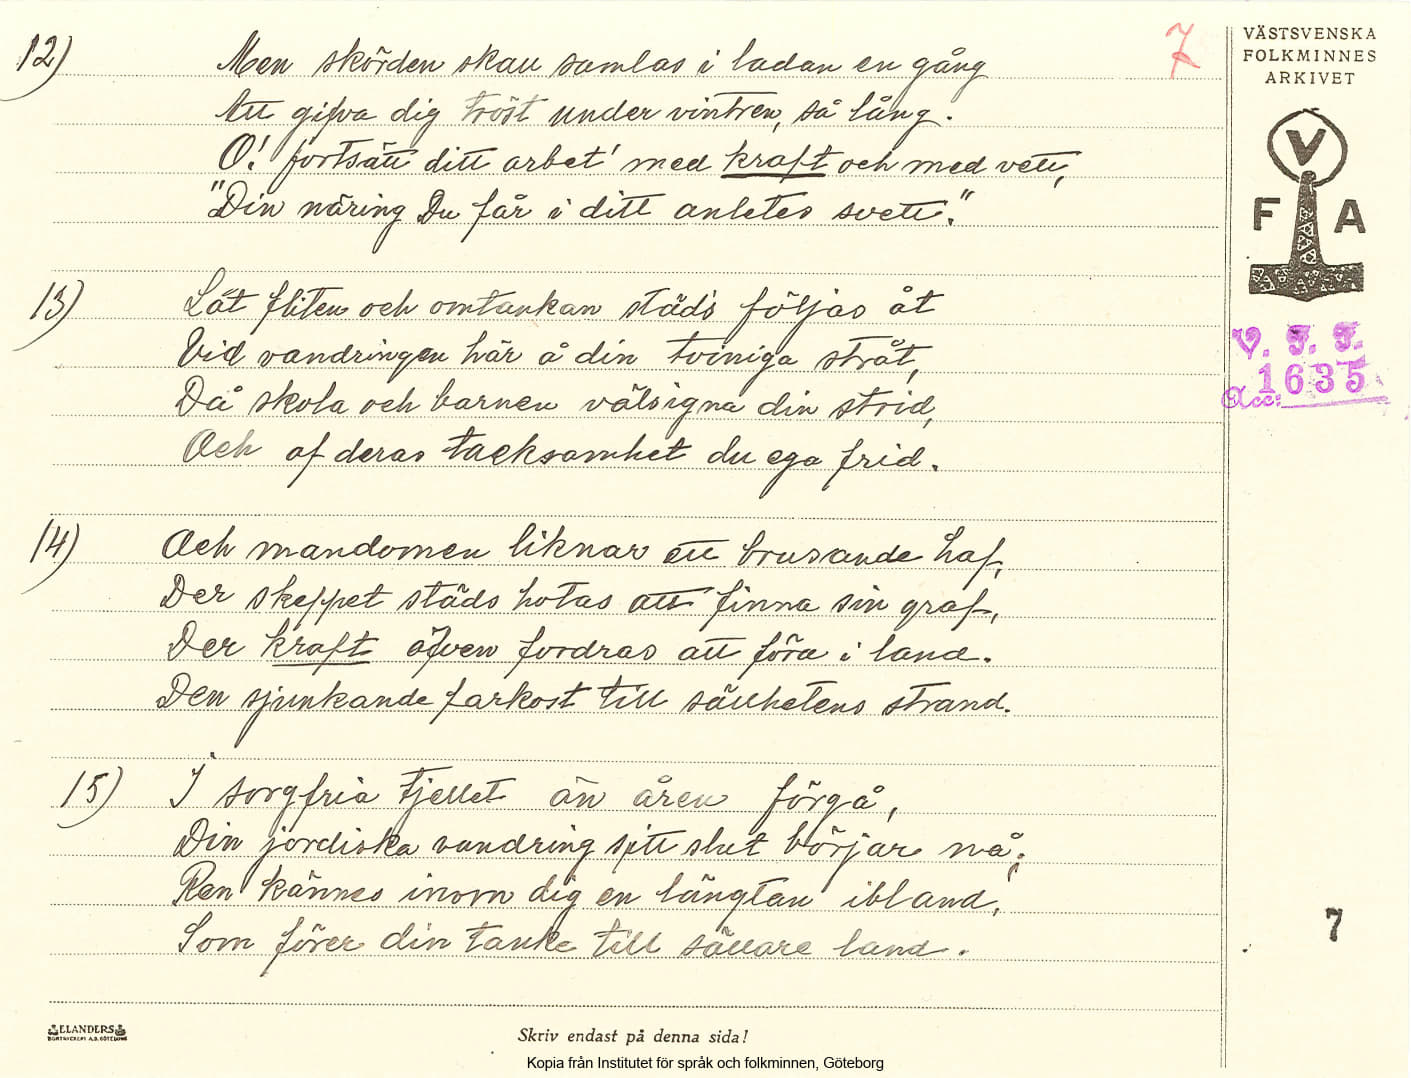 7
VÄSTSVENSKA
FOLKMINNES
ARKIVET
V
F A
V. F. F.
Acc: 1635
12) Men skörden skall samlas i ladan en gång
Att gifva dig tröst under vintren, så lång.
O! fortsätt ditt arbet' med kraft och med vett,
"Din näring Du får i ditt anletes svett."
13) Låt fliten och omtankan städs följas åt
Vid vandringen här å din tviniga stråt,
Då skola och barnen välsigna din strid,
Och af deras tacksamhet du ega frid.
14) Och mandomen liknar ett brusande haf,
Der skeppet städs hotas att finna sin graf,
Der kraft äfven fordras att föra i land.
Den sjunkande farkost till sällhetens strand.
15) I sorgfria tjellet än åren förgå,
Din jordiska vandring sitt slut börjar nå;
Ren kännes inom dig en längtan ibland,
Som förer din tanke till sällare land.
7
ELANDERS
BOKTRYCKERI A.B. GÖTEBORG
Skriv endast på denna sida!
Kopia från Institutet för språk och folkminnen, Göteborg